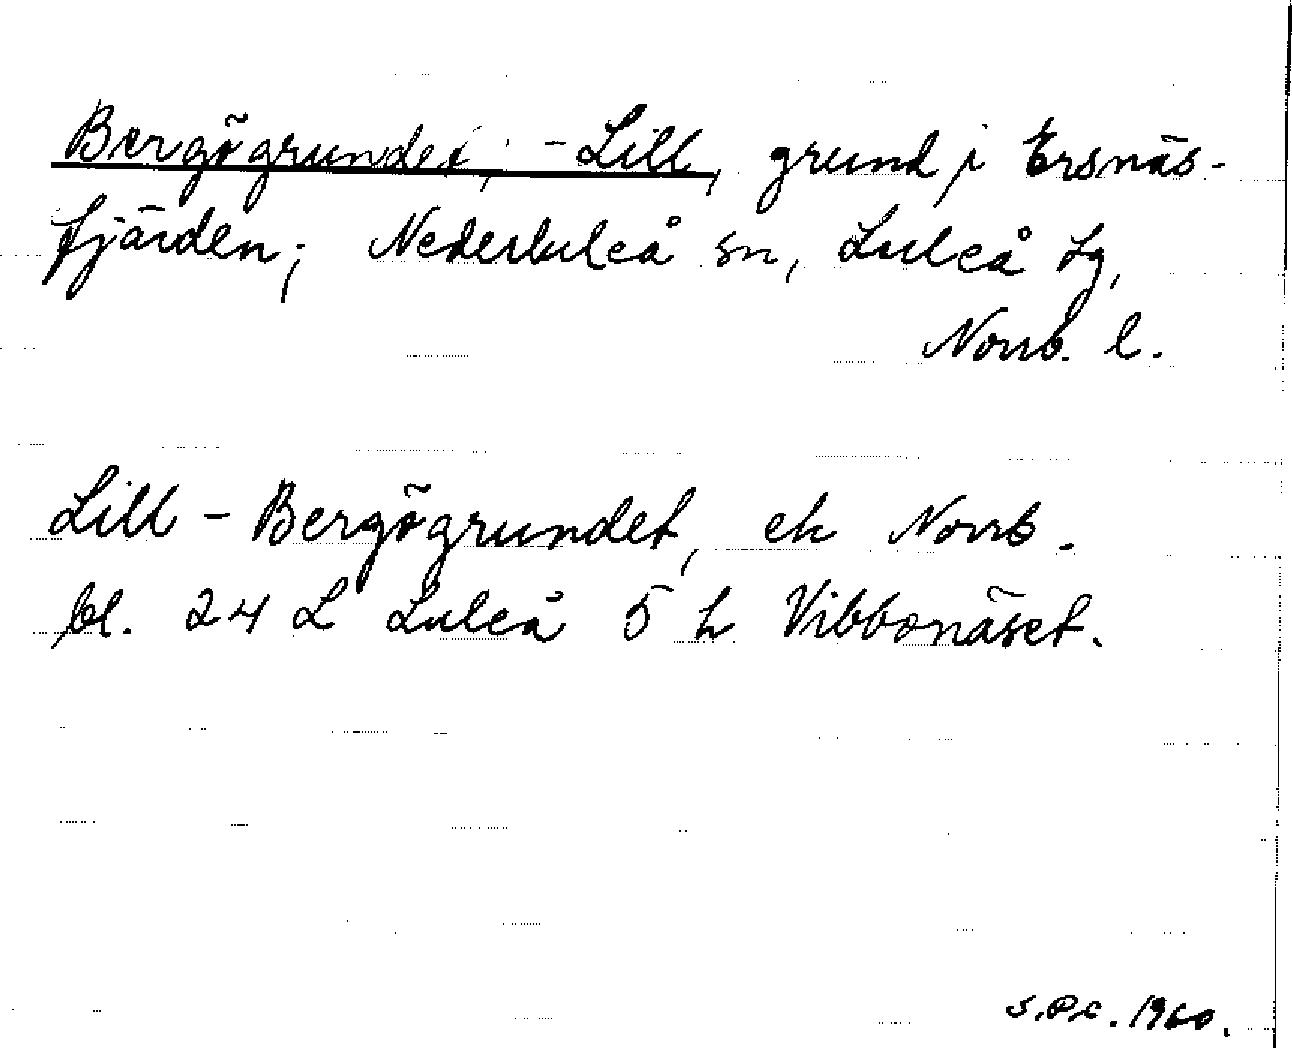 Bergögrundet, -Lill, grund i Ersnäs-
fjärden; Nederluleå sn, Luleå tg,
Norrb. l.
Lill-Bergögrundet, ek Norrb.
bl. 24 L Luleå 5 h Vibbonäset.
1960.